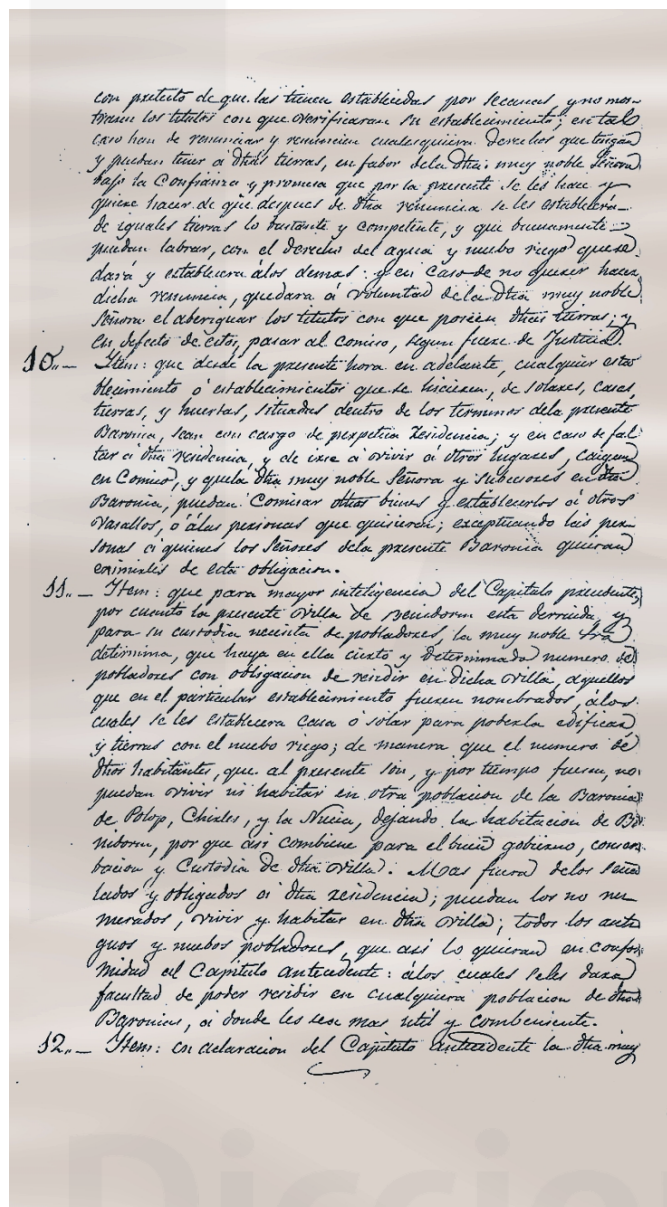 con pretexto de que las tienen establecidas por secanas, y no mos-
traren los titulos con que verificaran su establecimiento; en tal
caso han de renunciar y renuncien cualesquiera derechos que tengan
y puedan tener a dhas tierras, en fabor dela dha muy noble Señora
bajo la Confianza y promesa que por la presente se les hace y
quiere hacer de que despues de dha renuncia se les establecera
de iguales tierras lo bastante y competente, y que buenamente
puedan labrar, con el derecho del agua y nuebo riego que se
dará y establecera álos demas: y en Caso de no querer hacer
dicha renuncia, quedara á voluntad dela dha muy noble
Señora el aberiguar los titulos con que poseen dhas tierras; y
en defecto de estos, pasar al comiso, segun fuere de Justicia.
10.. — Item: que desde la presente hora en adelante, cualquier esta
blecimiento ó establecimientos que se hiciesen, de solares, casas,
tierras, y huertas, situadas dentro de los terminos dela presente
Baronia, sean con cargo de perpetua Residencia; y en caso de fal
tar a dha residencia, y de irse a vivir á otros lugares, caigan
en Comiso, y quela dha muy noble Señora y Subcesores en dha
Baronia, puedan Comisar dhos bienes y establecerlos á otros
Vasallos, ó álas personas que quisieren; exceptuando las per
sonas á quienes los Señores dela presente Baronia quieran
eximirles de esta obligacion.
11.. — Item: que para mayor inteligencia del Capitulo precedente,
por cuanto la presente Villa de Benidorm esta derruida, y
para su custodia necesita de pobladores, la muy noble Sra
determina, que haya en ella cierto y determinado numero de
pobladores con obligacion de residir en dicha Villa, aquellos
que en el particular establecimiento fueren nombrados, álos
cuales se les establecera casa o solar para poderla edificar
y tierras con el nuebo riego; de manera que el numero de
dhos habitantes, que al presente son, y por tiempo fueren, no
puedan vivir ni habitar en otra poblacion de la Baronia
de Polop, Chirles, y la Nucia, dejando la habitacion de Be
nidorm, por que asi combiene para el buen gobierno, conser
bacion y Custodia de dha Villa. Mas fuera delos Seña
lados y obligados á dha residencia; puedan los no nu
merados, vivir y habitar en dha Villa; todos los anti
guos y nuebos pobladores, que asi lo quieran en confor
midad al Capitulo antecedente: álos cuales seles dara
facultad de poder residir en cualquiera poblacion de dhas
Baronias, á donde les sea mas util y combeniente.
12.. — Item: en aclaracion del Capitulo antecedente la dha muy